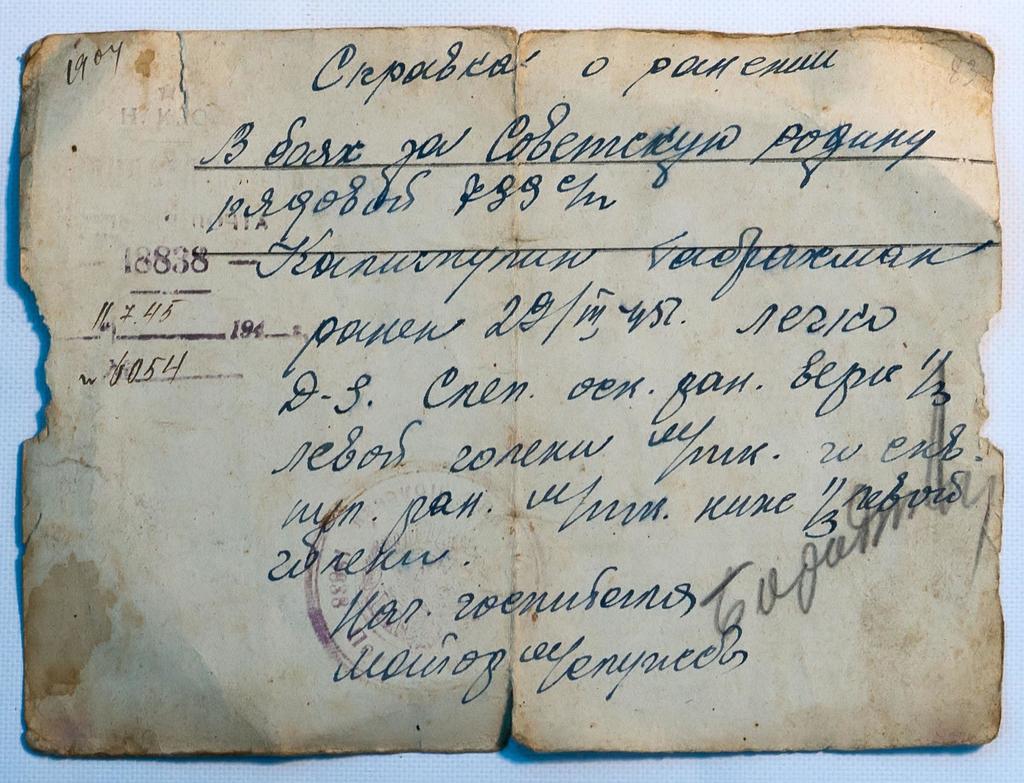 1904
Справка о ранении
В боях за Советскую родину
рядовой 799 с/п
18838
Габрахман
11.7.45
194 г.
ранен 29/III 45г. легко
№ 6054
Д-З. Слеп. оск. ран. верх 1/3
левой голени м/тк. и скв.
пул. ран. м/тк. ниж 1/3 левой
голени.
Нач. госпиталя
майор